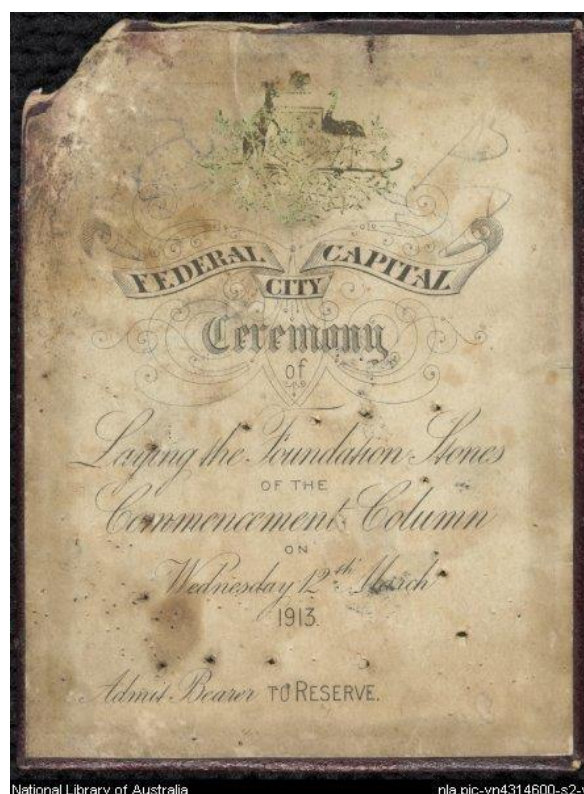 FEDERAL CITY CAPITAL
Ceremony
of
Laying the Foundation Stones
OF THE
Commencement Column
ON
Wednesday 12th March
1913.
Admit Bearer TO RESERVE.
National Library of Australia nla.pic-vn4314600-s2-